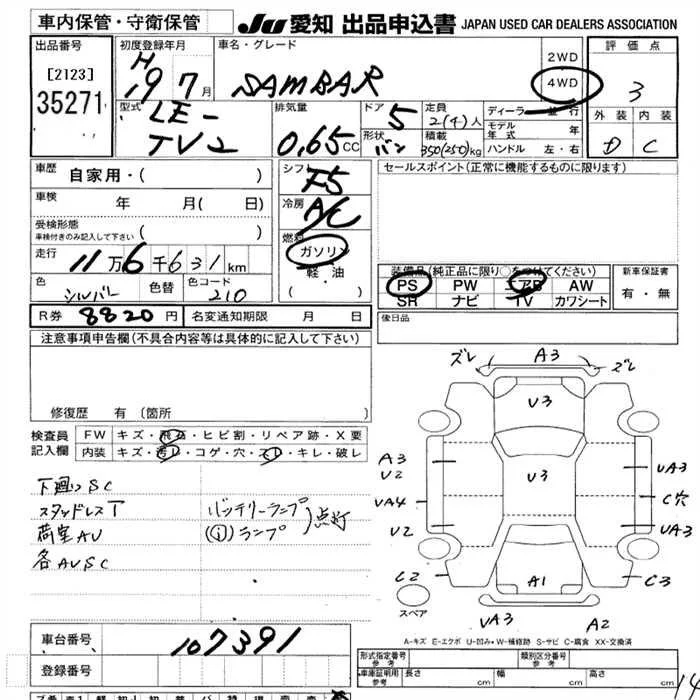 車内保管・守衛保管
JU 愛知 出品申込書 JAPAN USED CAR DEALERS ASSOCIATION
出品番号
[2123]
35271
初度登録年月
H
19 7月
車名・グレード
SAMBAR
2WD
4WD
評価点
3
外装 内装
D C
型式
LE-
TV2
排気量
0.65CC
ドア 5
形状 バン
定員
2(4)人
積載
350(250)kg
ディーラー・並行
モデル年式 年
ハンドル 左・右
車歴
自家用・( )
車検
年 月( 日)
受検形態
車検付きのみ記入して下さい
走行
11万6千631km
色
シルバー
色替
色コード
210
シフト
F5
冷房
A/C
燃料
ガソリン
軽・油
( ・ )
セールスポイント(正常に機能するものに限ります)
装備品(純正品に限り○をつけてください)
PS PW エアB AW
SR ナビ TV カワシート
新車保証書
有・無
R券 8820円 名変通知期限 月 日
後日品
注意事項申告欄(不具合内容等は具体的に記入して下さい)
修復歴 有(箇所
検査員記入欄
FW キズ・飛石・ヒビ割・リペア跡・X要
内装 キズ・汚レ・コゲ・穴・スレ・キレ・破レ
下廻りSC
スタッドレスT
荷室AU
各AUSC
バッテリーランプ
(①)ランプ
点灯
ズレ A3 ズレ
U3
A3
U2
U3
UA3
UA4
C穴
U2
UA3
C2
A1
C3
スペア
UA3 A2
A-キズ E-エクボ U-凹み W-補修跡 S-サビ C-腐食 XX-交換済
車台番号
107391
登録番号
形式指定番号
参考
類別区分番号
参考
車庫証明用
参考
長さ cm
幅 cm
高さ cm